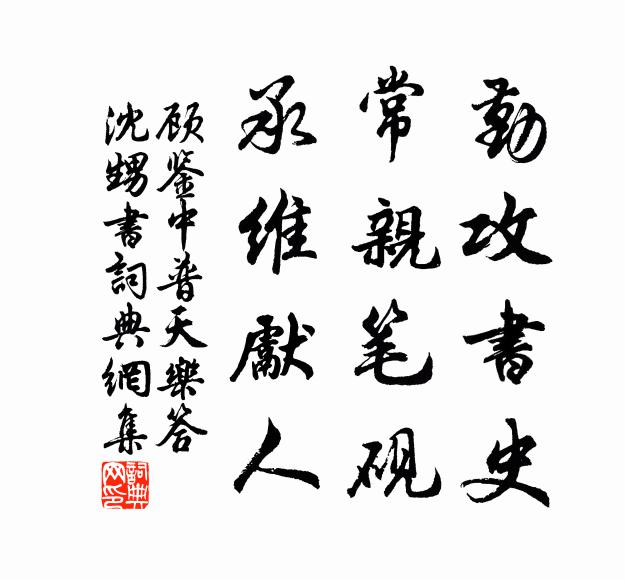 勤攻書史
常親笔砚
承維獻人
顾鉴中普天樂答
沈甥書詞典網集
詞典网印